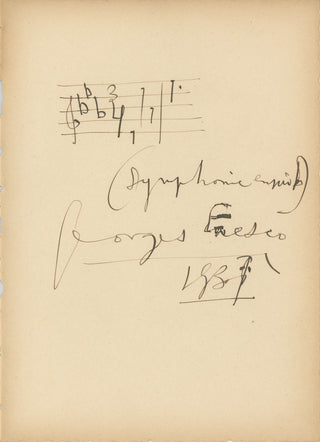 3
4
(Symphonie en mi b)
Georges Enesco
1937